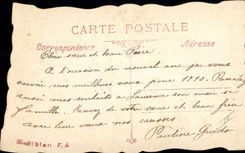 CARTE POSTALE
Correspondance Adresse
Chère sœur et beau Frère
A l'occasion du nouvel an je vous
envoie mes meilleurs vœux pour 1910.
aussi mes souhaits à Laurence son mari sa
famille. Recevez de votre sœur et beau frère
avec leur vœux nos caresses
Pauline
Edition F.A